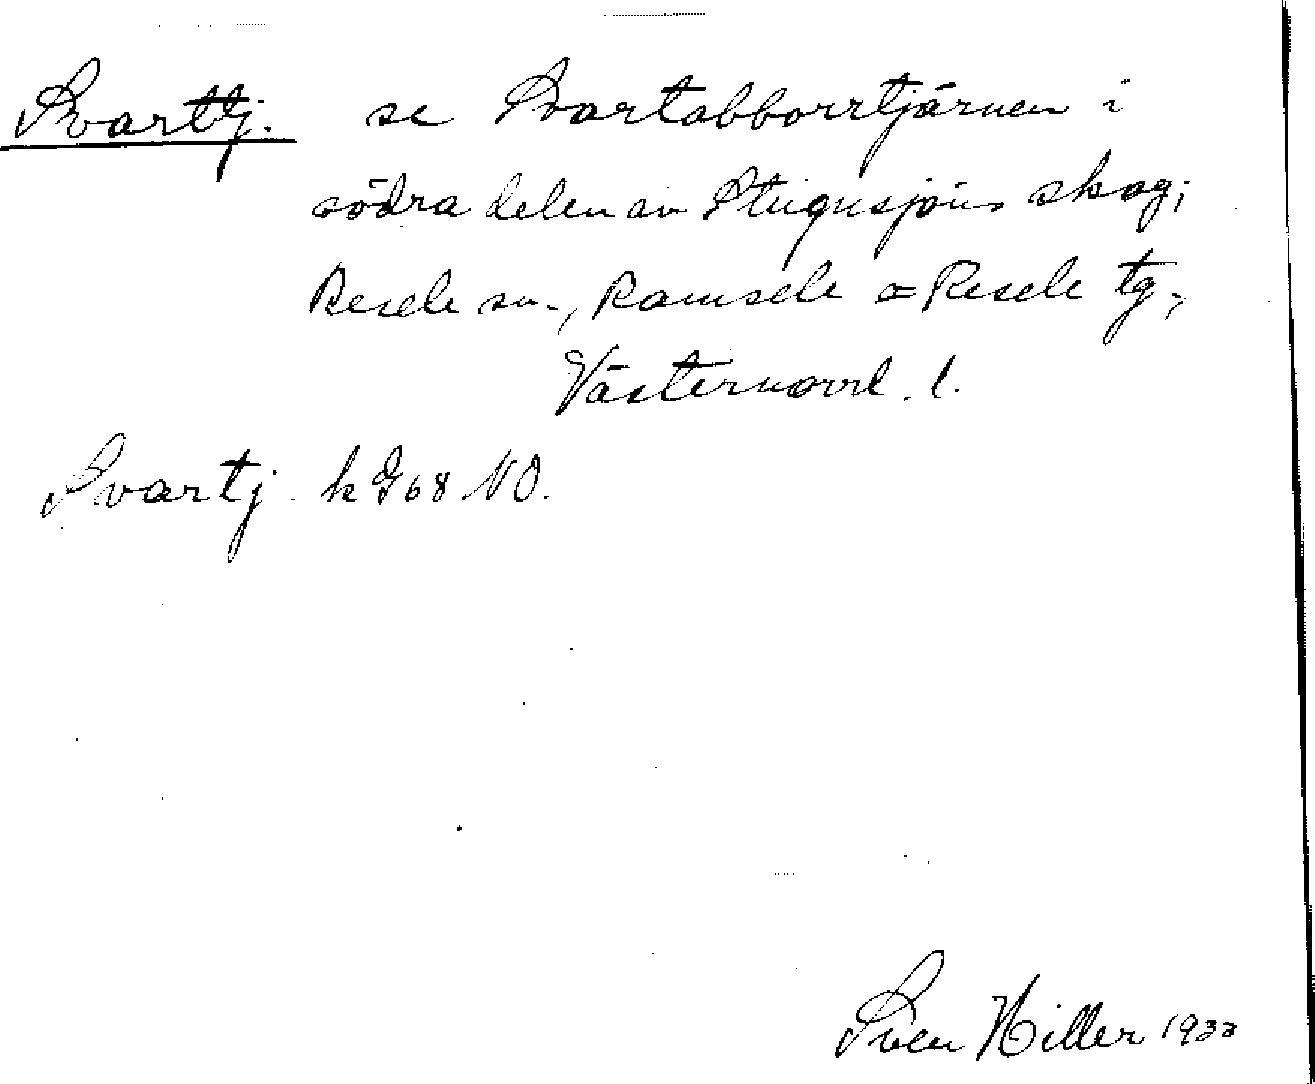 Svarttj. se Svartabborrtjärnen i
södra delen av Stugusjöns skog;
Resele sn., Ramsele o Resele tg,
Västernorrl. l.
Svartj. k G68 NO.
Sven Hiller 1933